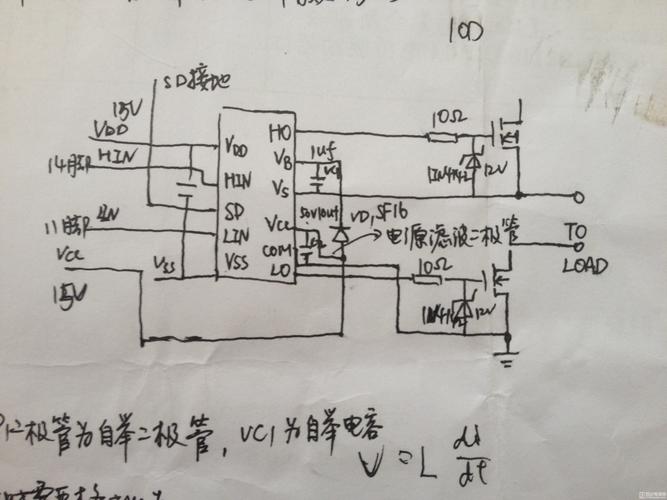 10D
SD接地
15V
VDD
HIN
14脚
11脚
LIN
Vcc
15V
VSS
VDD
HIN
SD
LIN
VSS
HO
VB
VS
Vcc
COM
LO
1uf
VC1
50V10uf
VD1SF16
电源滤波二极管
10Ω
12V
10Ω
12V
TO
LOAD
二极管为自举二极管，VC1为自举电容
V=L di/dt